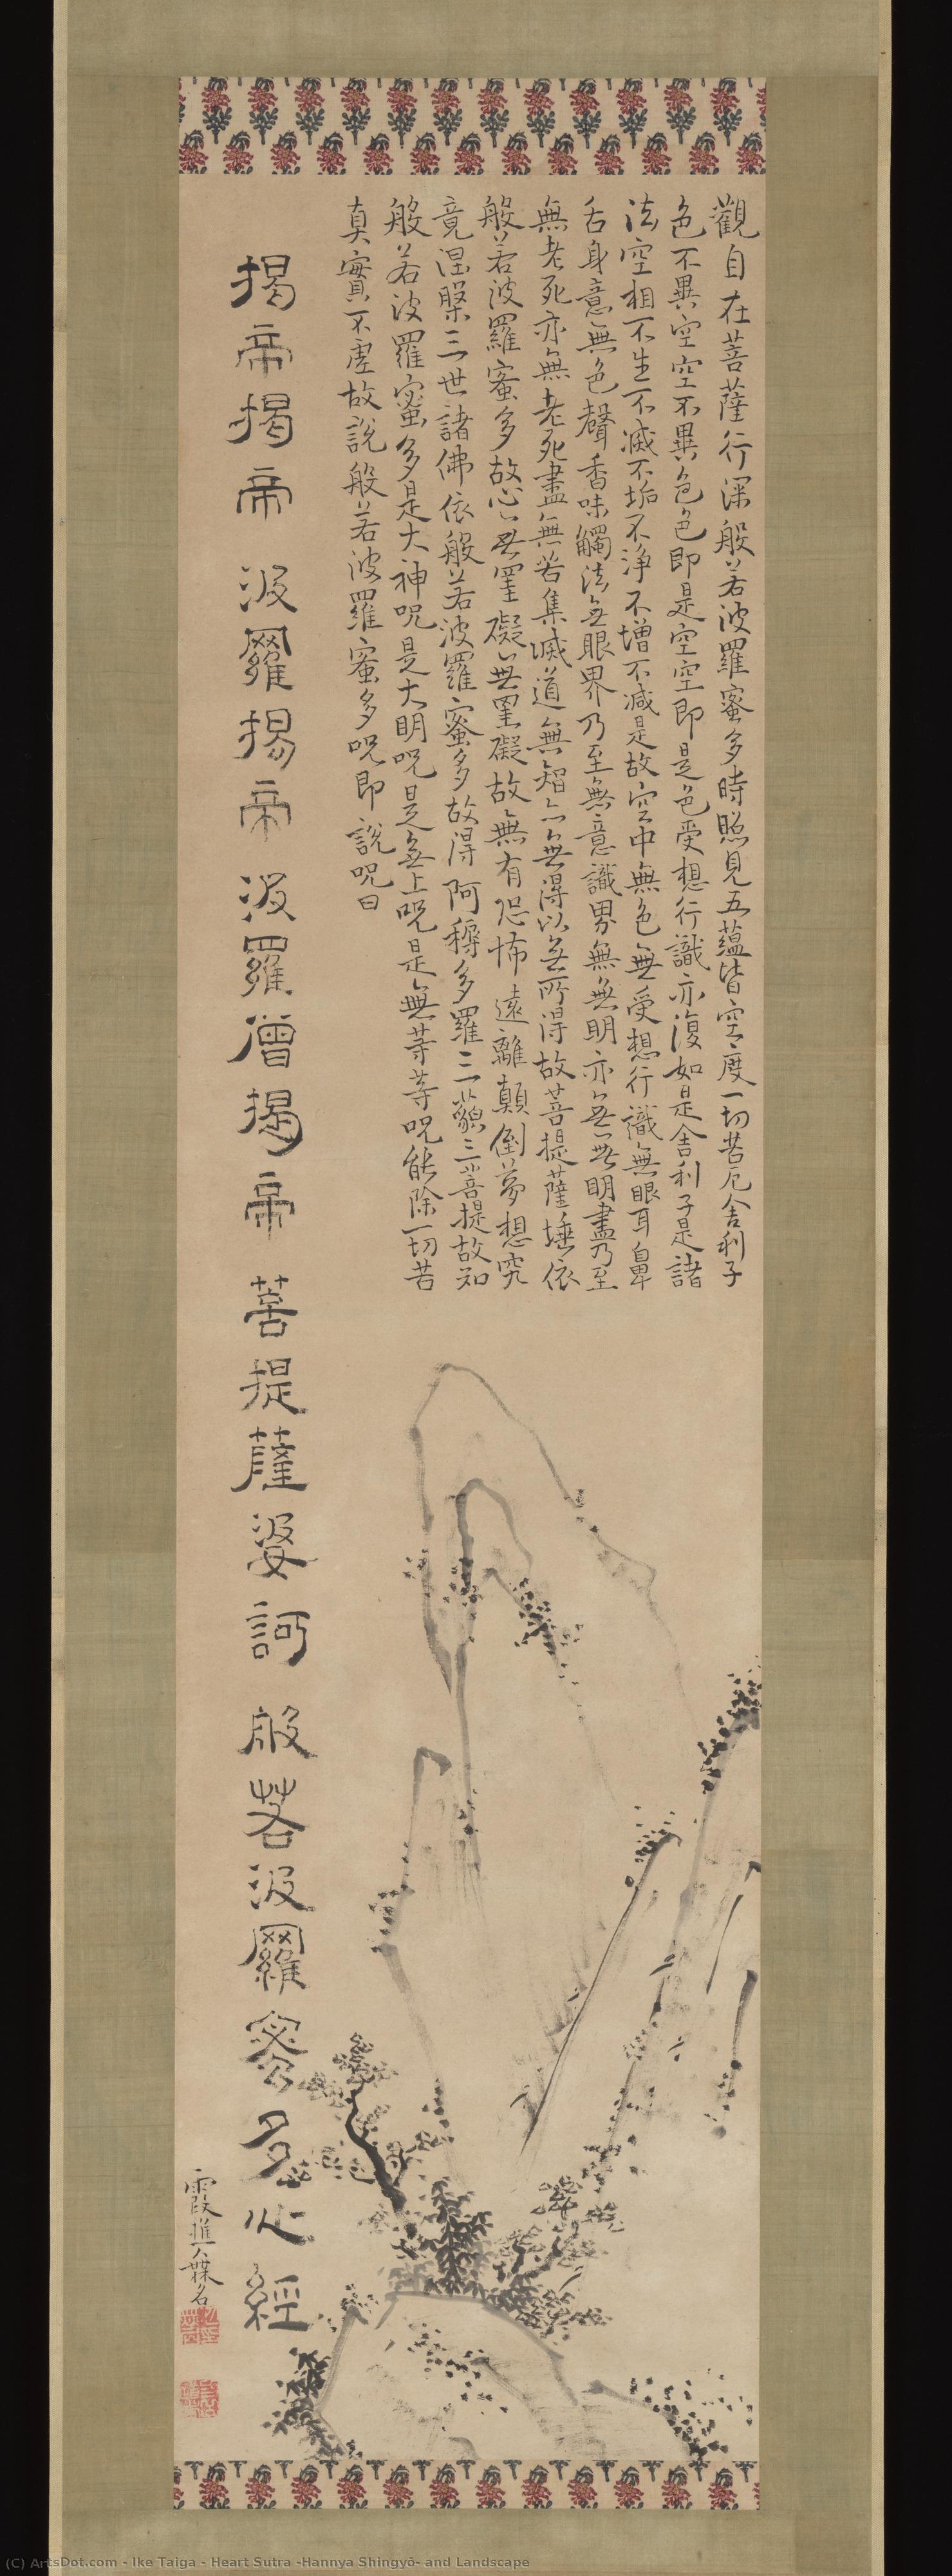 觀自在菩薩行深般若波羅蜜多時照見五蘊皆空度一切苦厄舍利子
色不異空空不異色色即是空空即是色受想行識亦復如是舍利子是諸
法空相不生不滅不垢不淨不增不減是故空中無色無受想行識無眼耳鼻
舌身意無色聲香味觸法無眼界乃至無意識界無無明亦無無明盡乃至
無老死亦無老死盡無苦集滅道無智亦無得以無所得故菩提薩埵依
般若波羅蜜多故心無罣礙無罣礙故無有恐怖遠離顛倒夢想究
竟涅槃三世諸佛依般若波羅蜜多故得阿耨多羅三藐三菩提故知
般若波羅蜜多是大神呪是大明呪是無上呪是無等等呪能除一切苦
真實不虛故說般若波羅蜜多呪即說呪曰
揭帝揭帝 波羅揭帝 波羅僧揭帝 菩提薩婆訶 般若波羅蜜多心經
霞樵無名
(C) ArtsDot.com - Ike Taiga - Heart Sutra -Hannya Shingyō- and Landscape